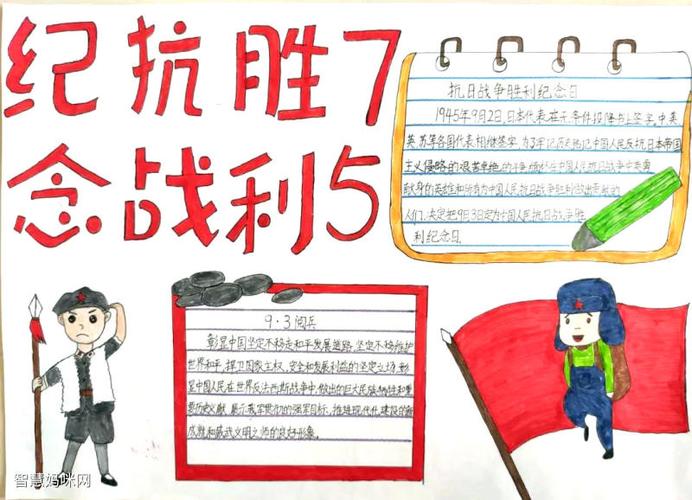 纪抗胜7
念战利5
抗日战争胜利纪念日
1945年9月2日,日本代表在无条件投降书上签字,中、美
英、苏等各国代表相继签字,为了牢记历史,铭记中国人民反抗日本帝国
主义侵略的艰苦卓绝的斗争 中国人民抗日战争中英勇
献身的英雄和所有为中国人民抗日战争胜利做出贡献的
人们,决定把9月3日定为中国人民抗日战争胜
利纪念日。
9·3阅兵
彰显中国坚定不移走和平发展道路,坚定不移维护
世界和平,捍卫国家主权、安全和发展利益的坚定立场,彰
显中国人民在世界反法西斯战争中做出的巨大民族牺牲和重
要历史贡献,展示我军 的强军目标,推进现代化建设的新
成就和威武文明之师的良好形象。
智慧妈咪网